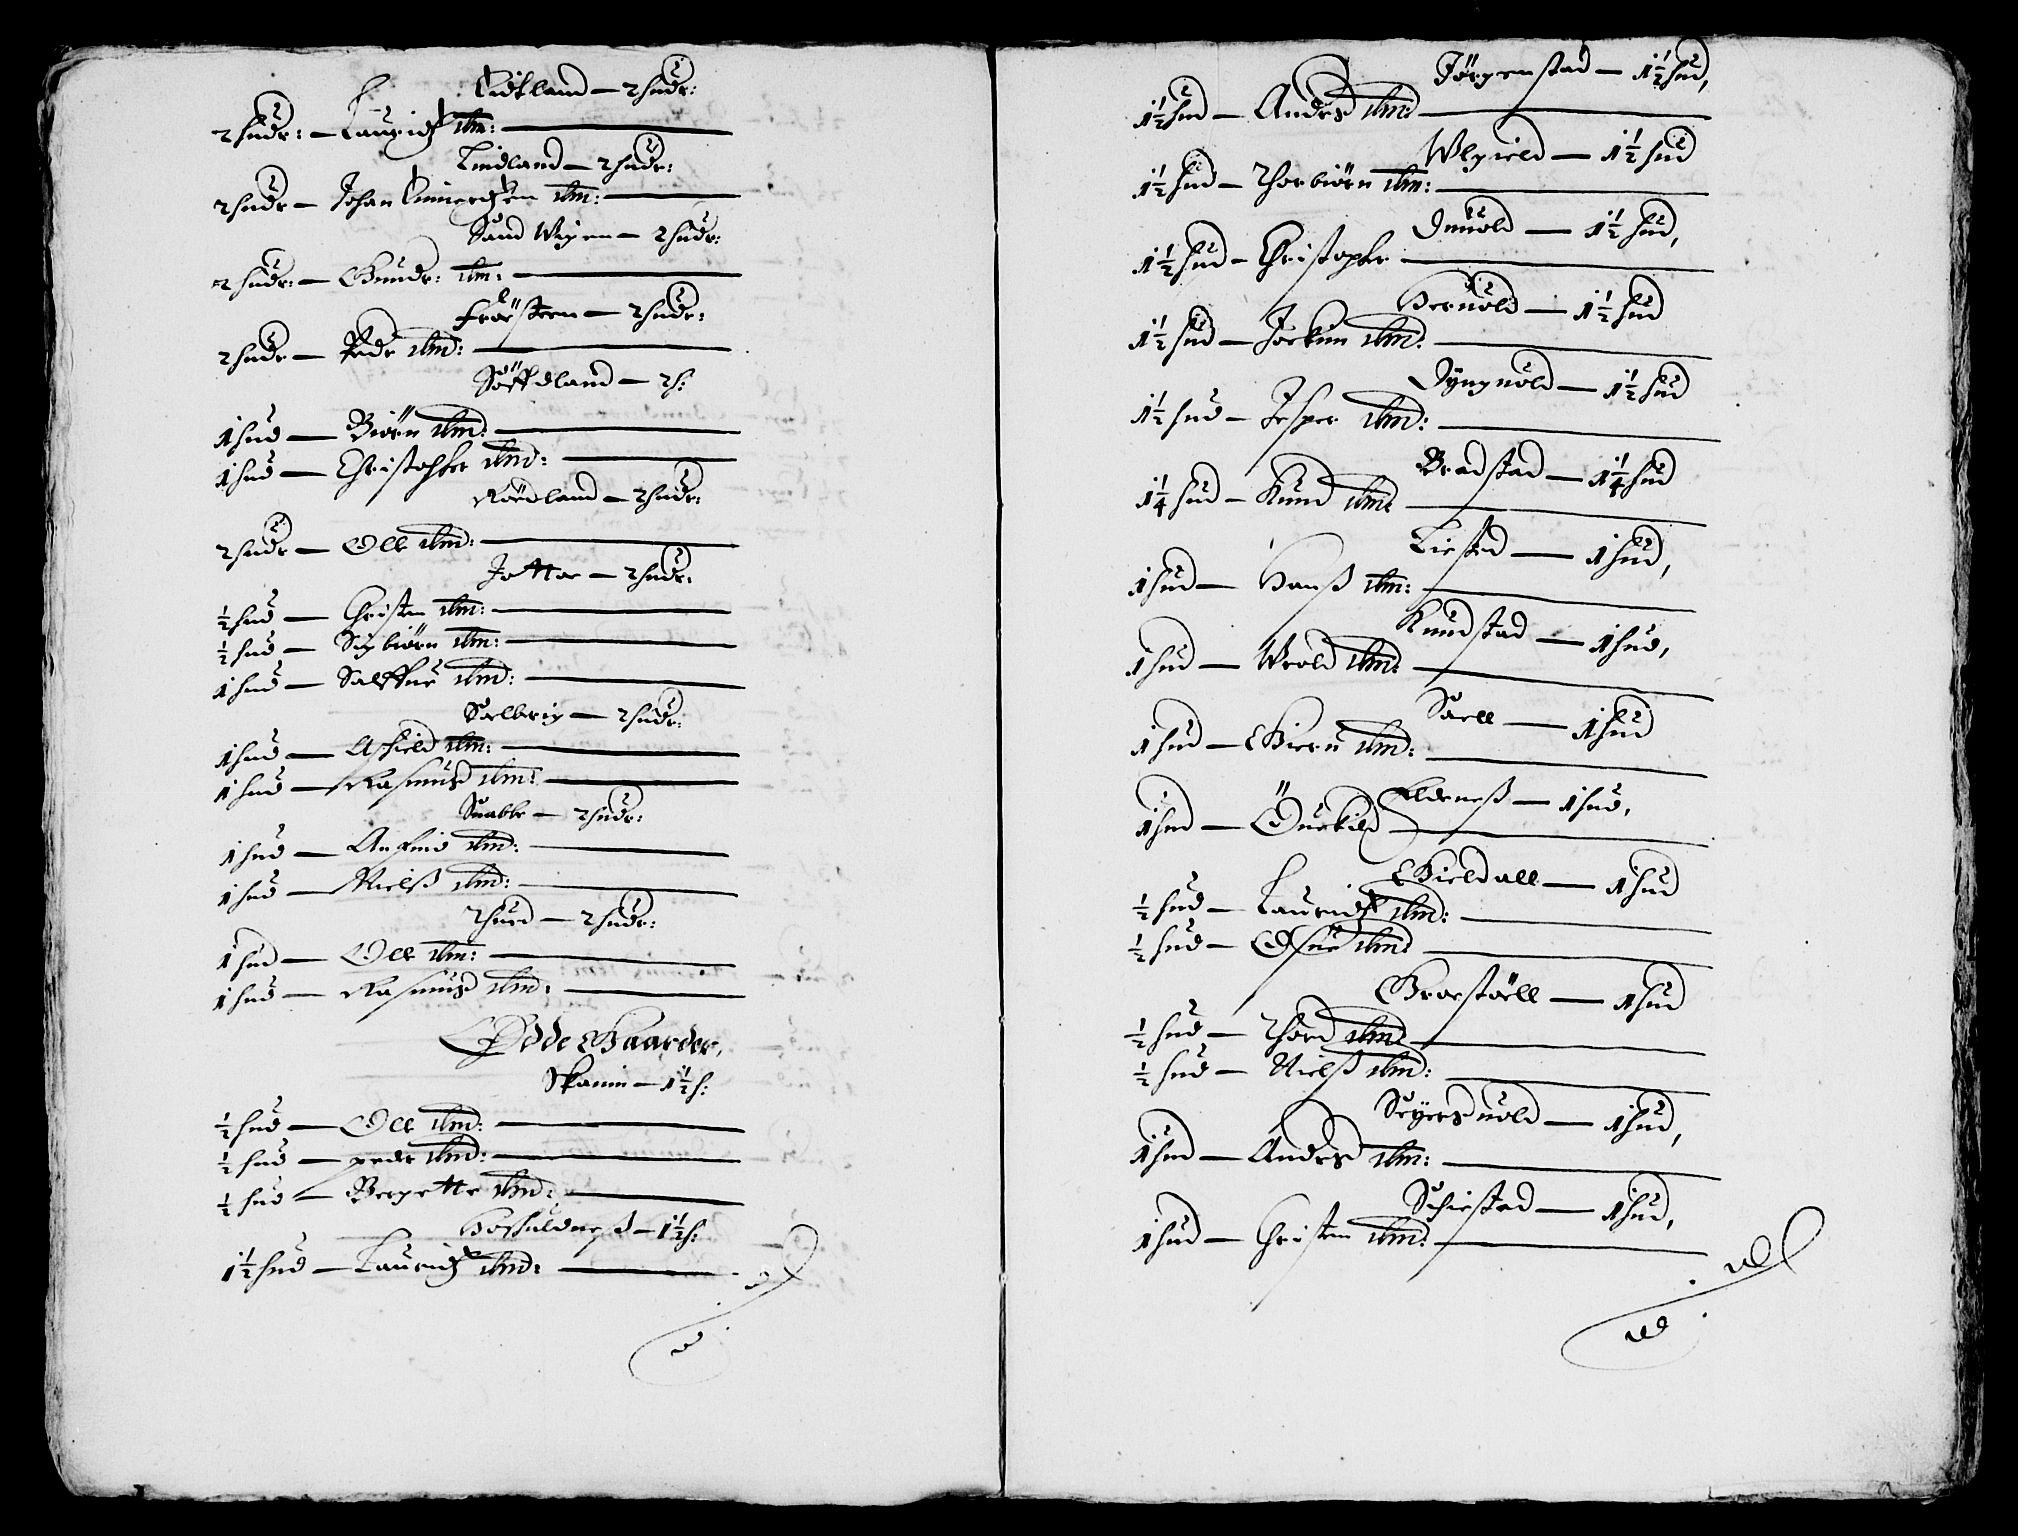 Lidland — 2 hudr:
2 hudr: — Lauridtz ibm:
Lindland — 2 hudr:
2 hudr — Johan ibm:
Sand Wigen — 2 hudr:
2 hudr: — Gundr: ibm:
Fröesteen — 2 hudr:
2 hudr — Peder ibm:
Söffdland — 2 h:
1 hud — Biörn ibm:
1 hud — Christopher ibm:
Rördland — 2 hudr:
2 hudr — Olle ibm:
Jottoe — 2 hudr:
½ hud — Christen ibm:
½ hud — Sigbiörn ibm:
1 hud — Salffue ibm:
Sælbrig — 2 hudr:
1 hud — Asfield ibm:
1 hud — Rasmus ibm:
Suabbe — 2 hudr:
1 hud — Anfind ibm:
1 hud — Nielß ibm:
Thued — 2 hudr:
1 hud — Olle ibm:
1 hud — Rasmus ibm:
Ødde Gaarder,
Skanin — 1½ h:
½ hud — Olle ibm:
½ hud — peder ibm:
½ hud — Bergette ibm:
Hoskuldneß — 1½ h:
1½ hud — Lauridtz ibm:
Jörgenstad — 1½ hud,
1½ hud — Anders ibm:
Wlgield — 1½ hud
1½ hud — Thorbiörn ibm:
Duuold — 1½ hud,
1½ hud — Christopher
Heruold — 1½ hud
1½ hud — Jockum ibm:
Dynguold — 1½ hud
1½ hud — Jesper ibm:
Bredstad — 1¼ hud
1¼ hud — Knud ibm:
Liested — 1 hud,
1 hud — Hanß ibm:
Knudstad — 1 hud,
1 hud — Wrold ibm:
Soell — 1 hud
1 hud — Biörn ibm:
Elderneß — 1 hud,
1 hud — Öuekild
Gieldall — 1 hud
½ hud — Lauridtz ibm:
½ hud — Osue ibm:
Groestöell — 1 hud
½ hud — Thord ibm:
½ hud — Nielß ibm:
Seyersuold — 1 hud,
1 hud — Anders ibm:
Schiestad — 1 hud,
1 hud — Christen ibm: